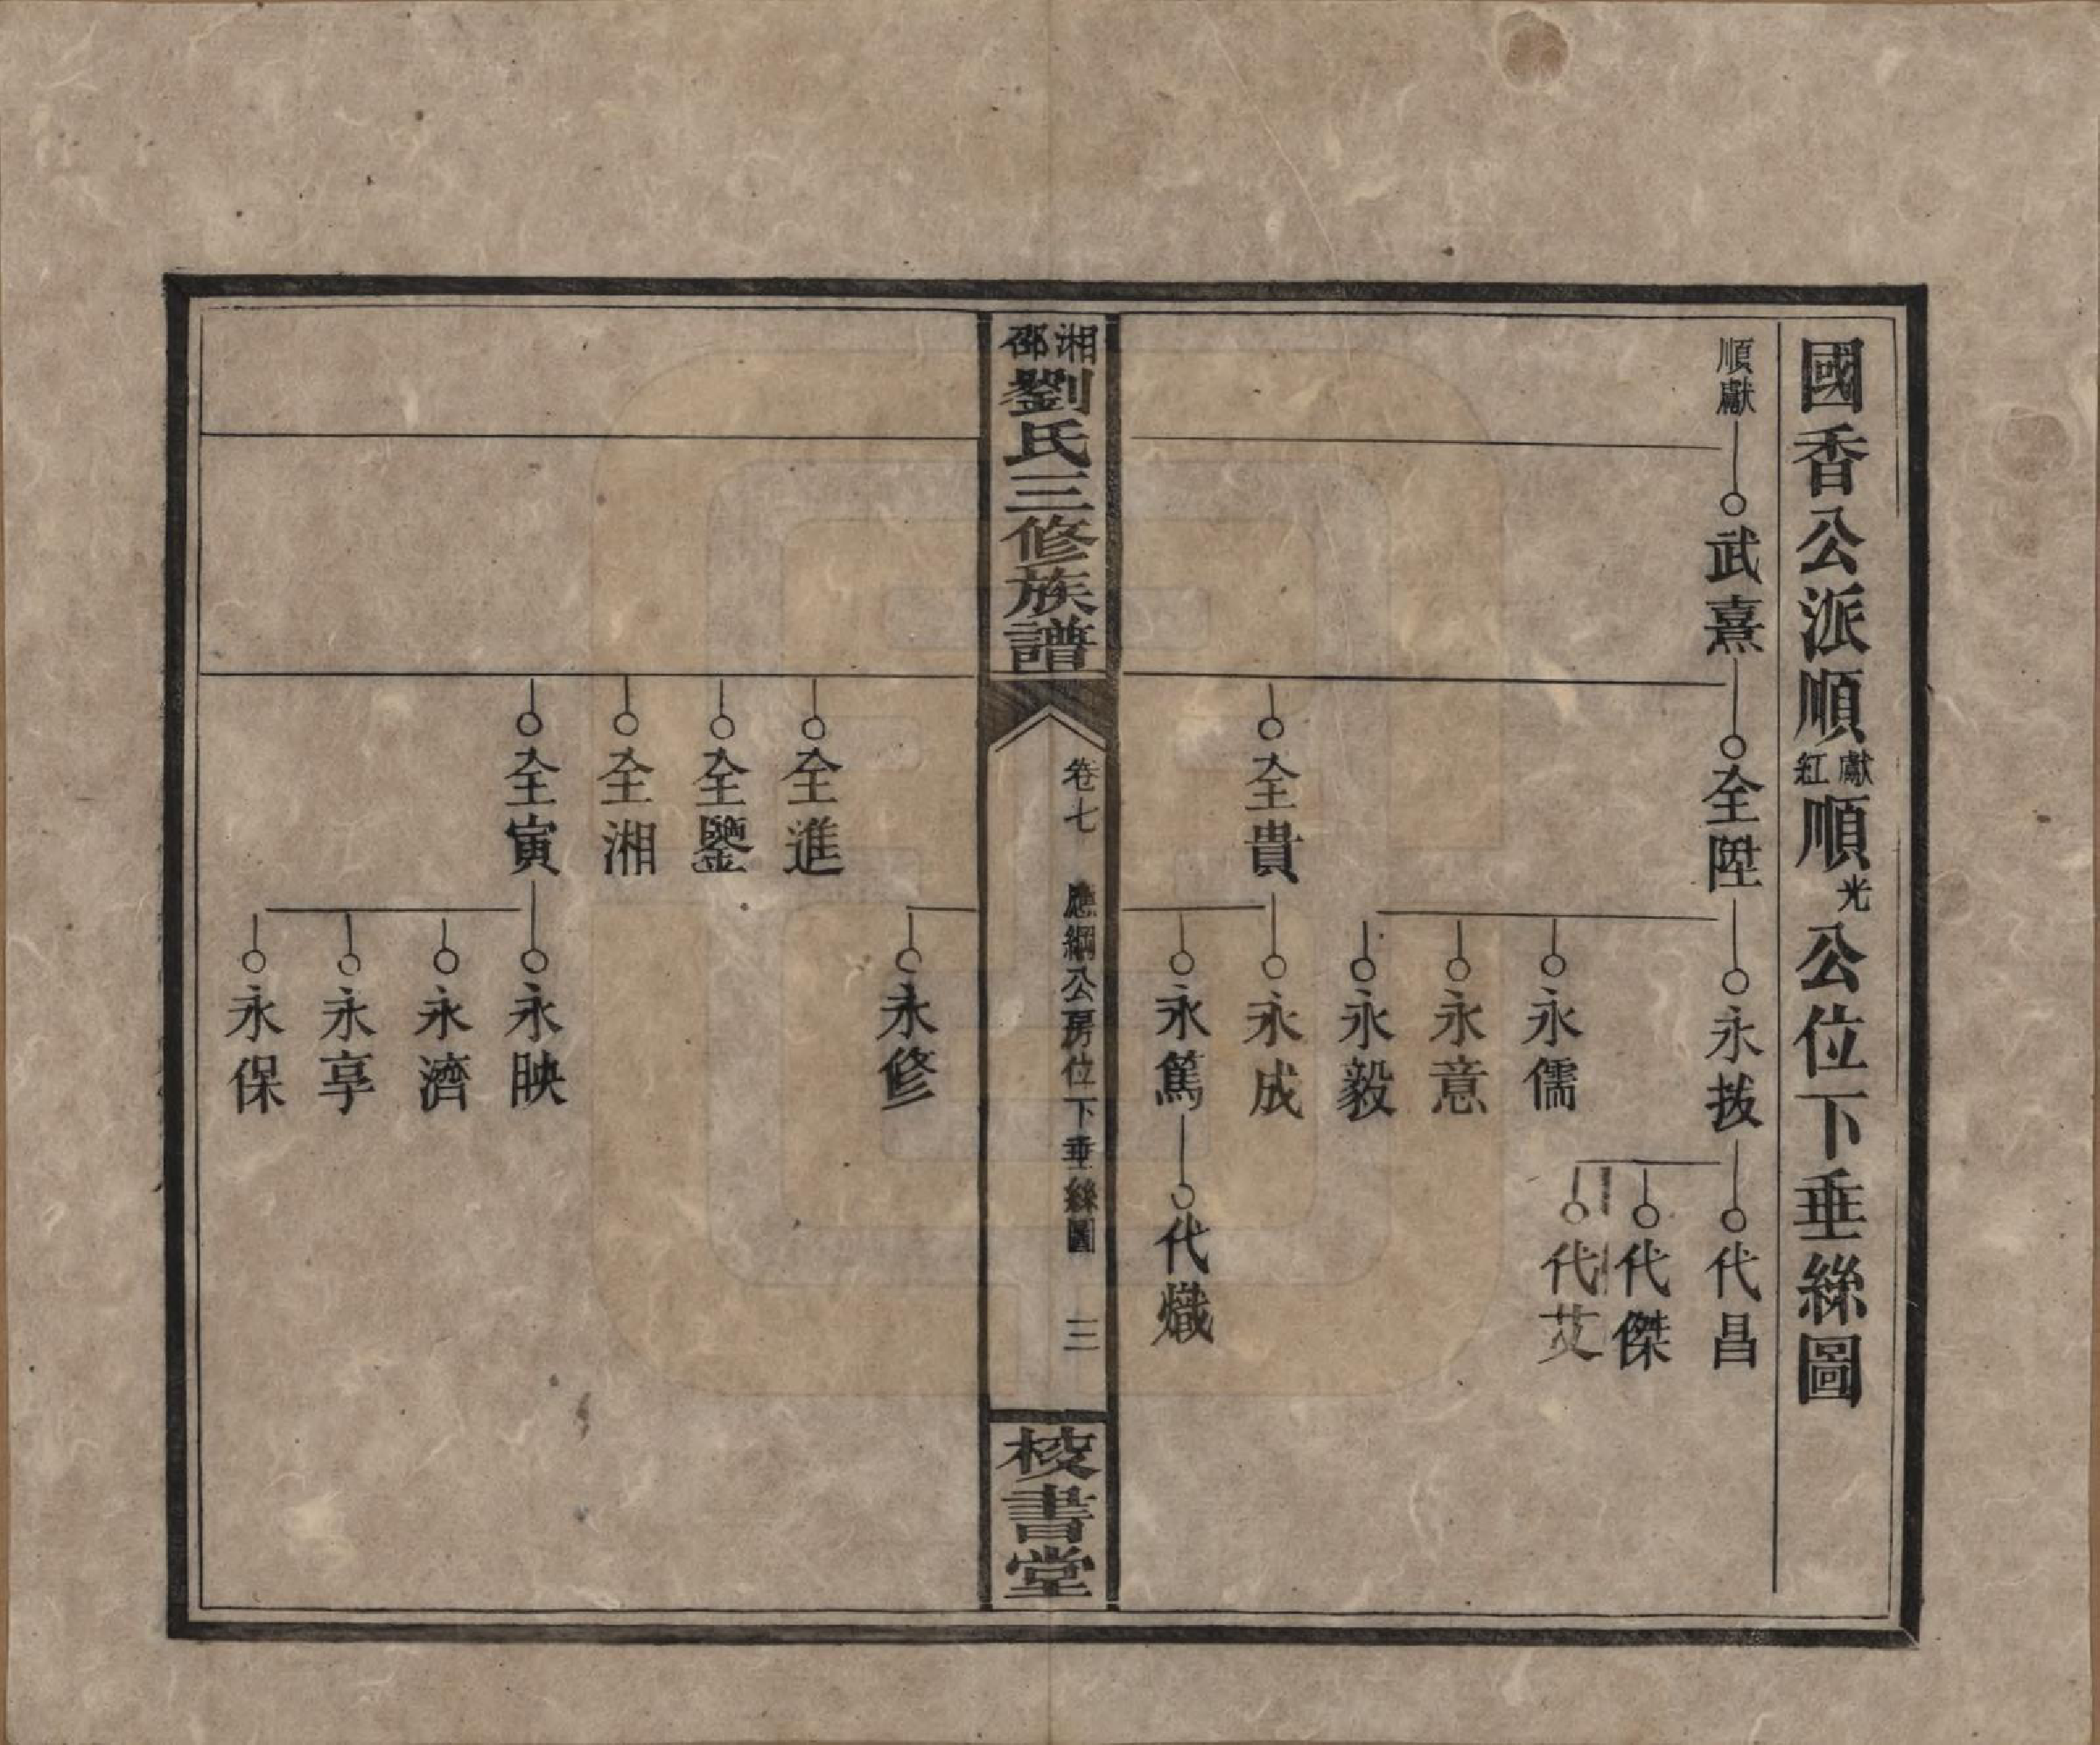 國香公派順獻紅順光公位下垂絲圖
順獻
武熹
全陞
永拔
代昌
代傑
代艾
永儒
永意
永毅
全貴
永成
永篤
代熾
湘邵劉氏三修族譜
卷七
應綱公房位下垂絲圖
三
校書堂
永修
全進
全鑒
全湘
全寅
永映
永濟
永享
永保